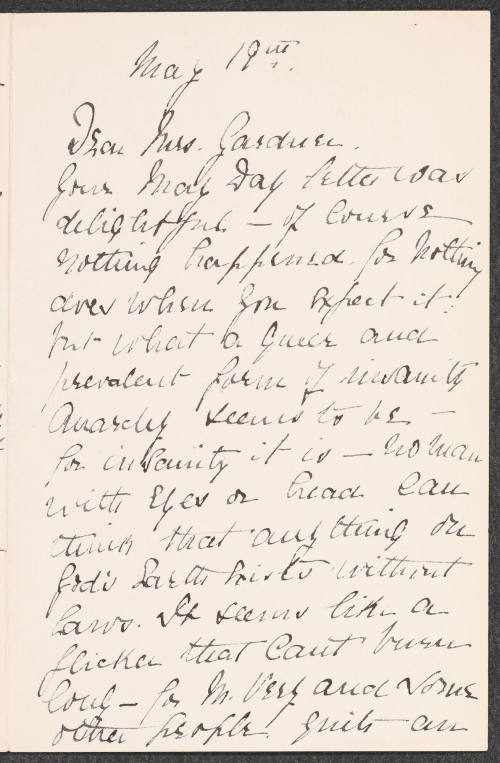 May 19th.
Dear Mrs. Gardner.
Your May Day letter was
delightful – of course
nothing happened. for nothing
does when you expect it.
but what a queer and
prevalent form of insanity
Anarchy seems to be –
for insanity it is – no man
with Eyes or head can
think that anything on
God's Earth exists without
laws. It seems like a
flicker that cant burn
long – for M. Very and some
other people. quite an